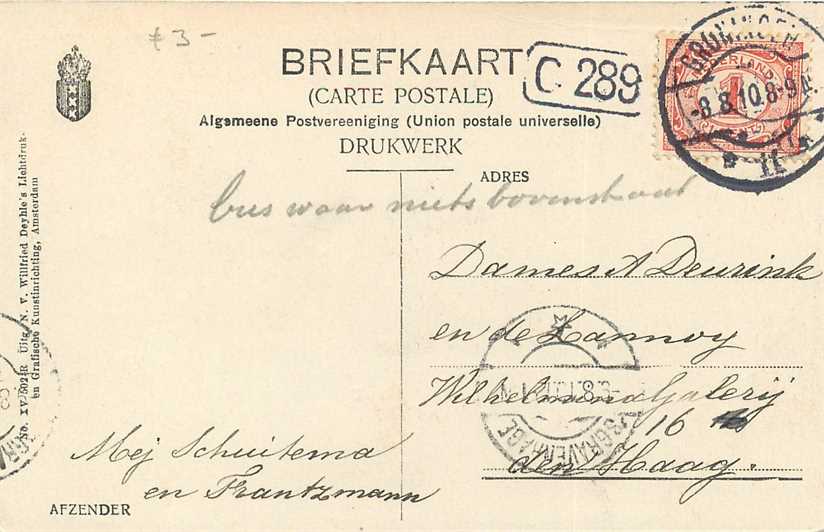 f 3-
BRIEFKAART
(CARTE POSTALE)
Algemeene Postvereeniging (Union postale universelle)
DRUKWERK
C 289
GRONINGEN
-8.8.10.8-9
NEDERLAND
1
ADRES
bus waar niets bovenstaat
Dames A Deurink
en de Lannoy
Wilhelmina Galerij
16
den Haag.
'S GRAVENHAGE
Mej Schuitema
en Frantzmann
AFZENDER
No. XV 502 R Uitg. N. V. Willfried Deyhle's Lichtdruk-
en Grafische Kunstinrichting, Amsterdam